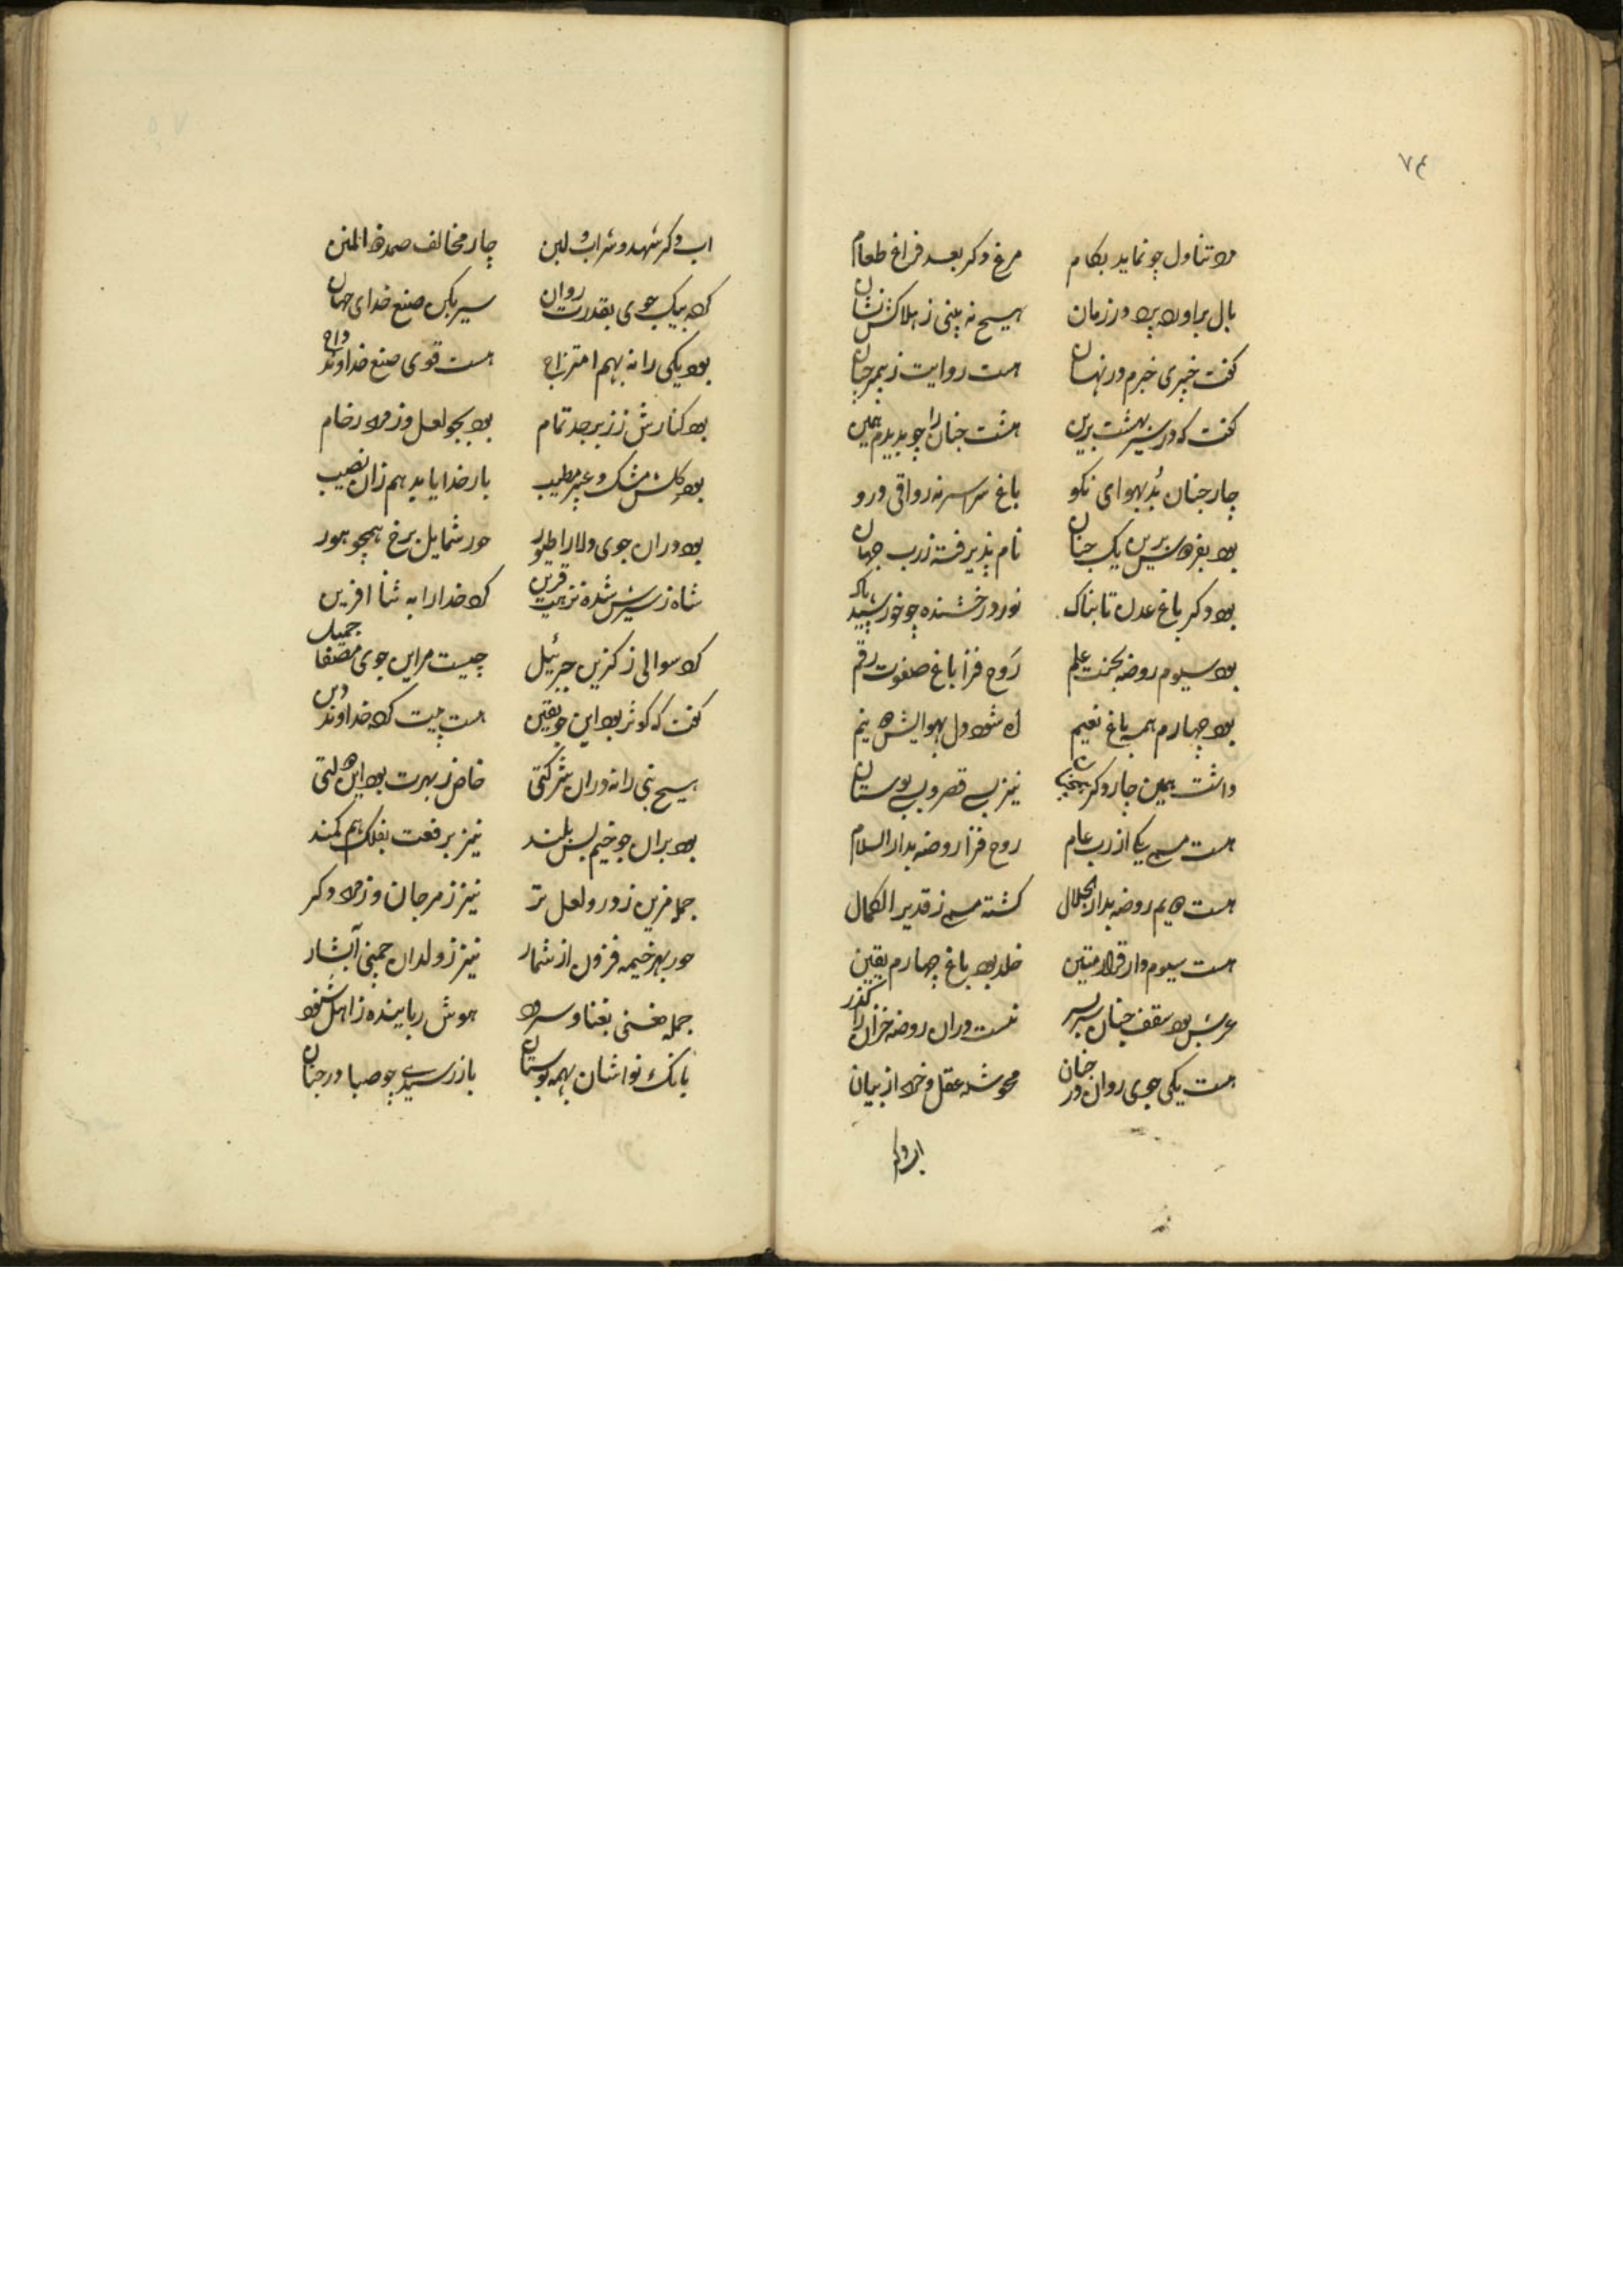 ٧٤
مرد تناول چو نماید بکام مرغ دکر بعد فراغ طعام
بال براورده پرد در زمان هیچ نه بینی ز هلاکش نشان
کفت خبری خبرم در نهان هست روایت ز پیمبر چنان
کفت که در سیر بهشت برین هشت جنان را چو بدیدم همین
چار جنان بُد بهوای نکو باغ سراسر نه رواقی درو
بود بفردوس برین یک جنان نام پذیرفته ز رب جهان
بود دکر باغ عدن تابناک نور درخشنده چو خورشید پاک
بود سیوم روضه بجنت علم رَوح فزا باغ صفوت رقم
بود چهارم همه باغ نعیم که شود دل بهوایش
داشت همین چار دکر نیز بسے قصر و بسے بوستان
هست مسمے یکے از رب عام روح فزا روضه بدار السلام
هست دویم روضه بدار الجلال کشته مسمے ز قدیر الکمال
هست سیوم دار قرار متین خلد بود باغ چهارم یقین
عرش بود سقف جنان سربسر نیست دران روضه خزان را کذر
هست یکی جوی روان در جنان محو شده عقل و خرد از بیان
اب دکر
اب دکر شهد و شراب و لبن چار مخالف صمد ذو المنن
کرد بیک جوی بقدرت روان سیر بکن صنع خدای جهان
بود یکی را نه بهم امتزاج هست قوی صنع خداوند
بود کنارش ز زبرجد تمام بود بجو لعل و زمرد رخام
بود کلش مشک و عبیر مطیب بار خدایا بده هم زان نصیب
بود دران جوی ولارا طیور حور شمایل برخ همچو هور
شاه ز سیرش شده نزهت قرین کرد خدا را به ثنا افرین
کرد سوالی ز کزین جبرئیل چیست مر این جوی مصفا جمیل
کفت که کوثر بود این جو یقین هست پیت کرده خداوند دین
هیچ نبی را نه دران شرکتی خاص ز بهرت بود این دولتی
بود بران جو خیم بس بلند نیز برفعت بفلک هم کمند
جمله مزین ز در و لعل تر نیز ز مرجان و زمرد دکر
حور بهر خیمه فزون از شمار نیز ز ولدان چمنی آبشار
جمله مغنی بغنا و سرود هوش رباینده ز اهل شنود
بانک نواشان بهمه بوستان باز رسیدے چو صبا در جنان